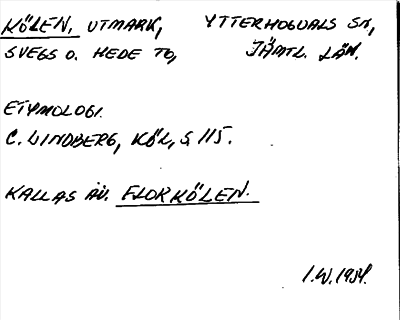 KÖLEN, UTMARK, YTTERHOGDALS SN,
SVEGS O. HEDE TG, JÄMTL. LÄN.
ETYMOLOGI.
C. LINDBERG, KÖL, S 115.
KALLAS ÄV. FLORKÖLEN.
I.W. 1954.